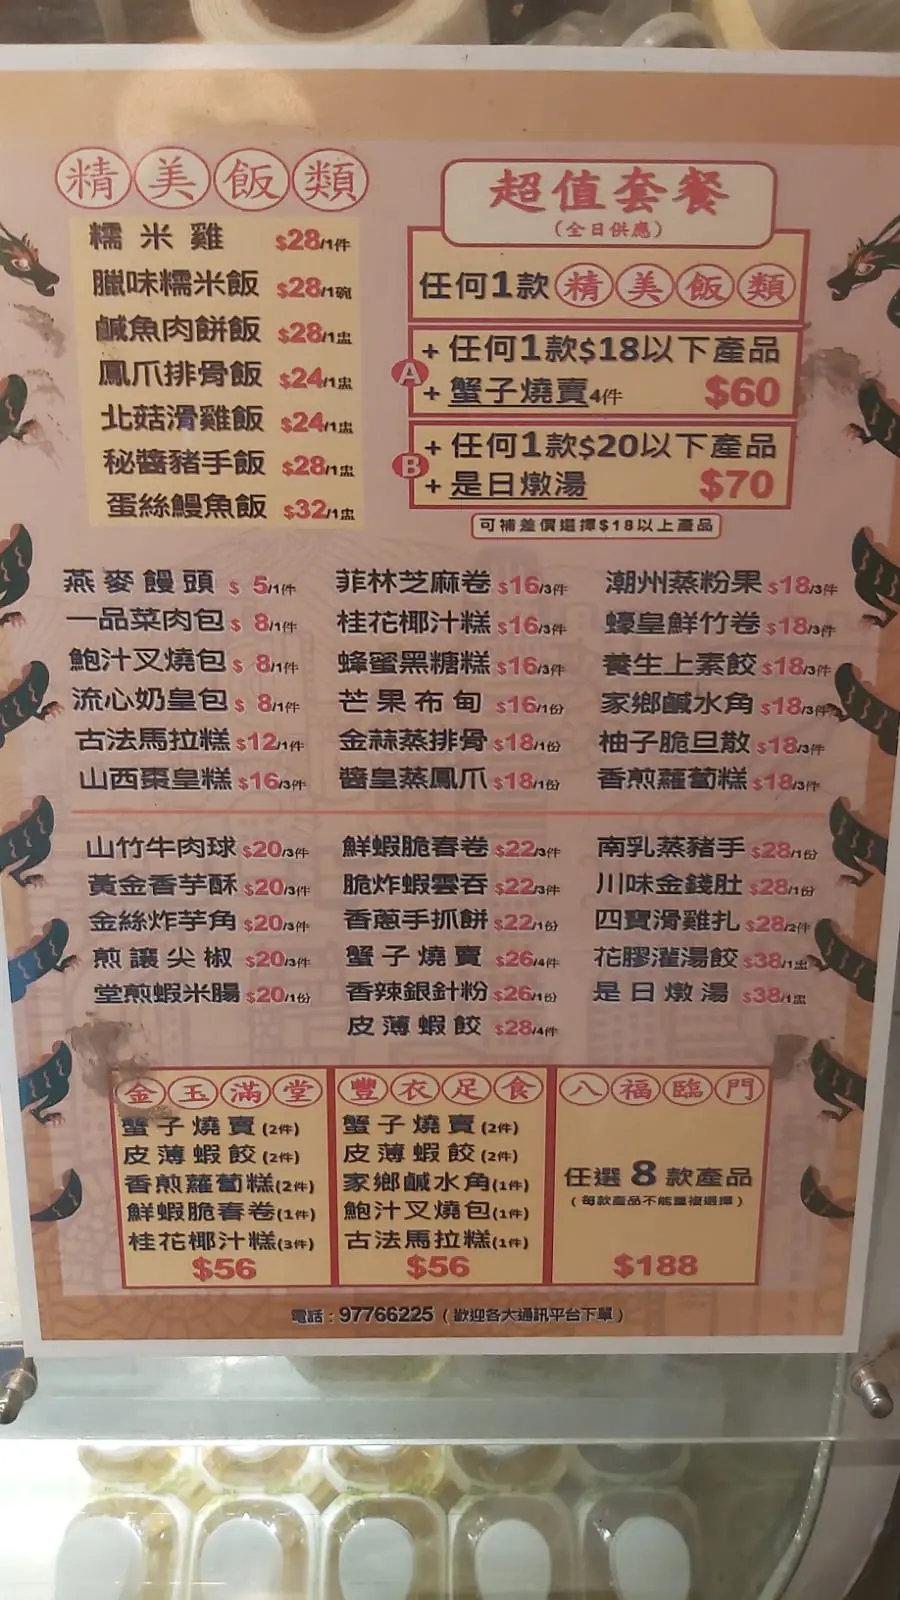 精美飯類
糯米雞 $28/1件
臘味糯米飯 $28/1碗
鹹魚肉餅飯 $28/1盅
鳳爪排骨飯 $24/1盅
北菇滑雞飯 $24/1盅
秘醬豬手飯 $28/1盅
蛋絲鰻魚飯 $32/1盅
超值套餐
(全日供應)
任何1款精美飯類
A
+ 任何1款$18以下產品
+ 蟹子燒賣4件 $60
B
+ 任何1款$20以下產品
+ 是日燉湯 $70
可補差價選擇$18以上產品
燕麥饅頭 $ 5/1件
一品菜肉包 $ 8/1件
鮑汁叉燒包 $ 8/1件
流心奶皇包 $ 8/1件
古法馬拉糕 $12/1件
山西棗皇糕 $16/3件
菲林芝麻卷 $16/3件
桂花椰汁糕 $16/3件
蜂蜜黑糖糕 $16/3件
芒果布甸 $16/1份
金蒜蒸排骨 $18/1份
醬皇蒸鳳爪 $18/1份
潮州蒸粉果 $18/3件
蠔皇鮮竹卷 $18/3件
養生上素餃 $18/3件
家鄉鹹水角 $18/3件
柚子脆旦散 $18/3件
香煎蘿蔔糕 $18/3件
山竹牛肉球 $20/3件
黃金香芋酥 $20/3件
金絲炸芋角 $20/3件
煎讓尖椒 $20/3件
堂煎蝦米腸 $20/1份
鮮蝦脆春卷 $22/3件
脆炸蝦雲吞 $22/3件
香蔥手抓餅 $22/1份
蟹子燒賣 $26/4件
香辣銀針粉 $26/1份
皮薄蝦餃 $28/4件
南乳蒸豬手 $28/1份
川味金錢肚 $28/1份
四寶滑雞扎 $28/2件
花膠灌湯餃 $38/1盅
是日燉湯 $38/1盅
金玉滿堂
蟹子燒賣(2件)
皮薄蝦餃(2件)
香煎蘿蔔糕(2件)
鮮蝦脆春卷(1件)
桂花椰汁糕(3件)
$56
豐衣足食
蟹子燒賣(2件)
皮薄蝦餃(2件)
家鄉鹹水角(1件)
鮑汁叉燒包(1件)
古法馬拉糕(1件)
$56
八福臨門
任選8款產品
(每款產品不能重複選擇)
$188
電話：97766225（歡迎各大通訊平台下單）